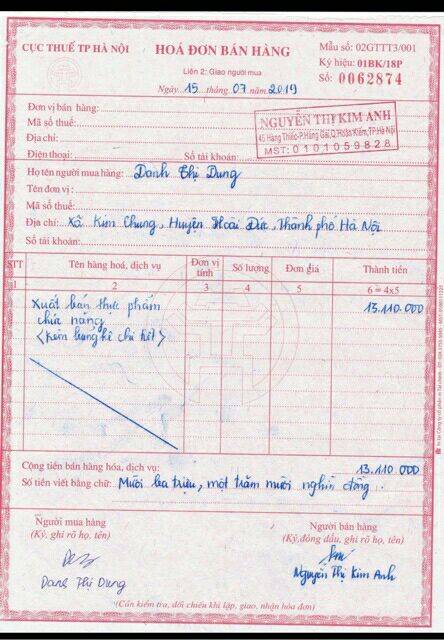 CỤC THUẾ TP HÀ NỘI
HOÁ ĐƠN BÁN HÀNG
Liên 2: Giao người mua
Ngày 15 tháng 07 năm 2019
Mẫu số: 02GTTT3/001
Ký hiệu: 01BK/18P
Số: 0062874
Đơn vị bán hàng:
Mã số thuế:
Địa chỉ:
Điện thoại: Số tài khoản:
NGUYỄN THỊ KIM ANH
45 Hàng Thiếc-P.Hàng Gai,Q.Hoàn Kiếm,TP.Hà Nội
MST: 0101059828
Họ tên người mua hàng: Danh Thị Dung
Tên đơn vị:
Mã số thuế:
Địa chỉ: Xã Kim Chung, Huyện Hoài Đức, Thành phố Hà Nội
Số tài khoản:
STT Tên hàng hoá, dịch vụ Đơn vị tính Số lượng Đơn giá Thành tiền
1 2 3 4 5 6 = 4x5
Xuất bán thực phẩm 13.110.000
chức năng
<Kèm bảng kê chi tiết>
Cộng tiền bán hàng hóa, dịch vụ: 13.110.000
Số tiền viết bằng chữ: Mười ba triệu, một trăm mười nghìn đồng.
Người mua hàng Người bán hàng
(Ký, ghi rõ họ, tên) (Ký,đóng dấu, ghi rõ họ, tên)
Danh Thị Dung Nguyễn Thị Kim Anh
(Cần kiểm tra, đối chiếu khi lập, giao, nhận hóa đơn)